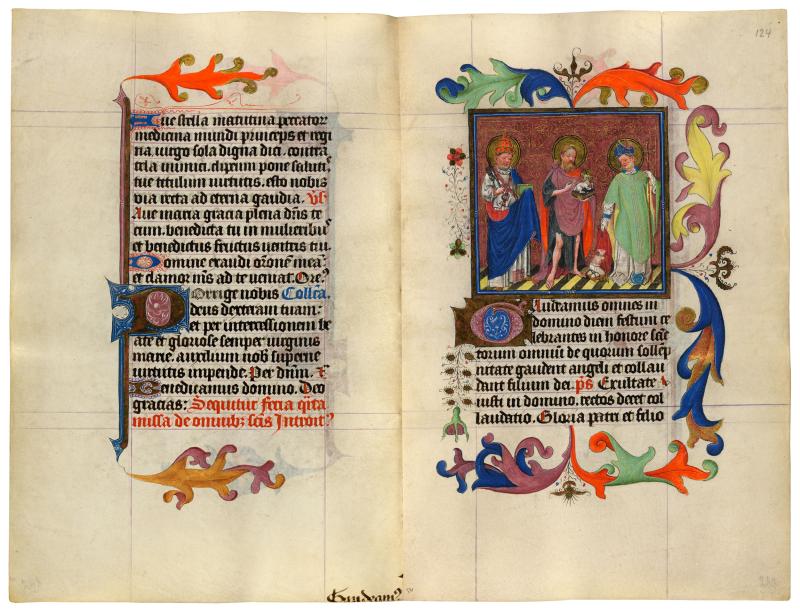 Aue stella matutina peccator
medicina mundi princeps et regi
na. uirgo sola digna dici. contra
tela inimici. clipeum pone saluti
tue titulum uirtutis. esto nobis
via recta ad eterna gaudia. Vs
Aue maria gracia plena dns te
cum. benedicta tu in mulieribus
et benedictus fructus uentris tui.
Domine exaudi orone mea
et clamor ms ad te ueniat. Ore?
Porrige nobis Collca.
deus dexteram tuam:
et per intercessionem be
ate et gloriose semper uirginis
marie. auxilium nob superne
uirtutis impende. Per dnm.
Benedicamus domino. Deo
gracias: Sequitur feria qita
missa de omnibz scis Introit?
Gaudeam?
124
Gaudeamus omnes in
domino diem festum ce
lebrantes in honore sce
torum omniu de quorum sollep
nitate gaudent angeli et collau
dant filium dei. ps Exultate
iusti in domino. rectos decet col
laudatio. Gloria patri et filio